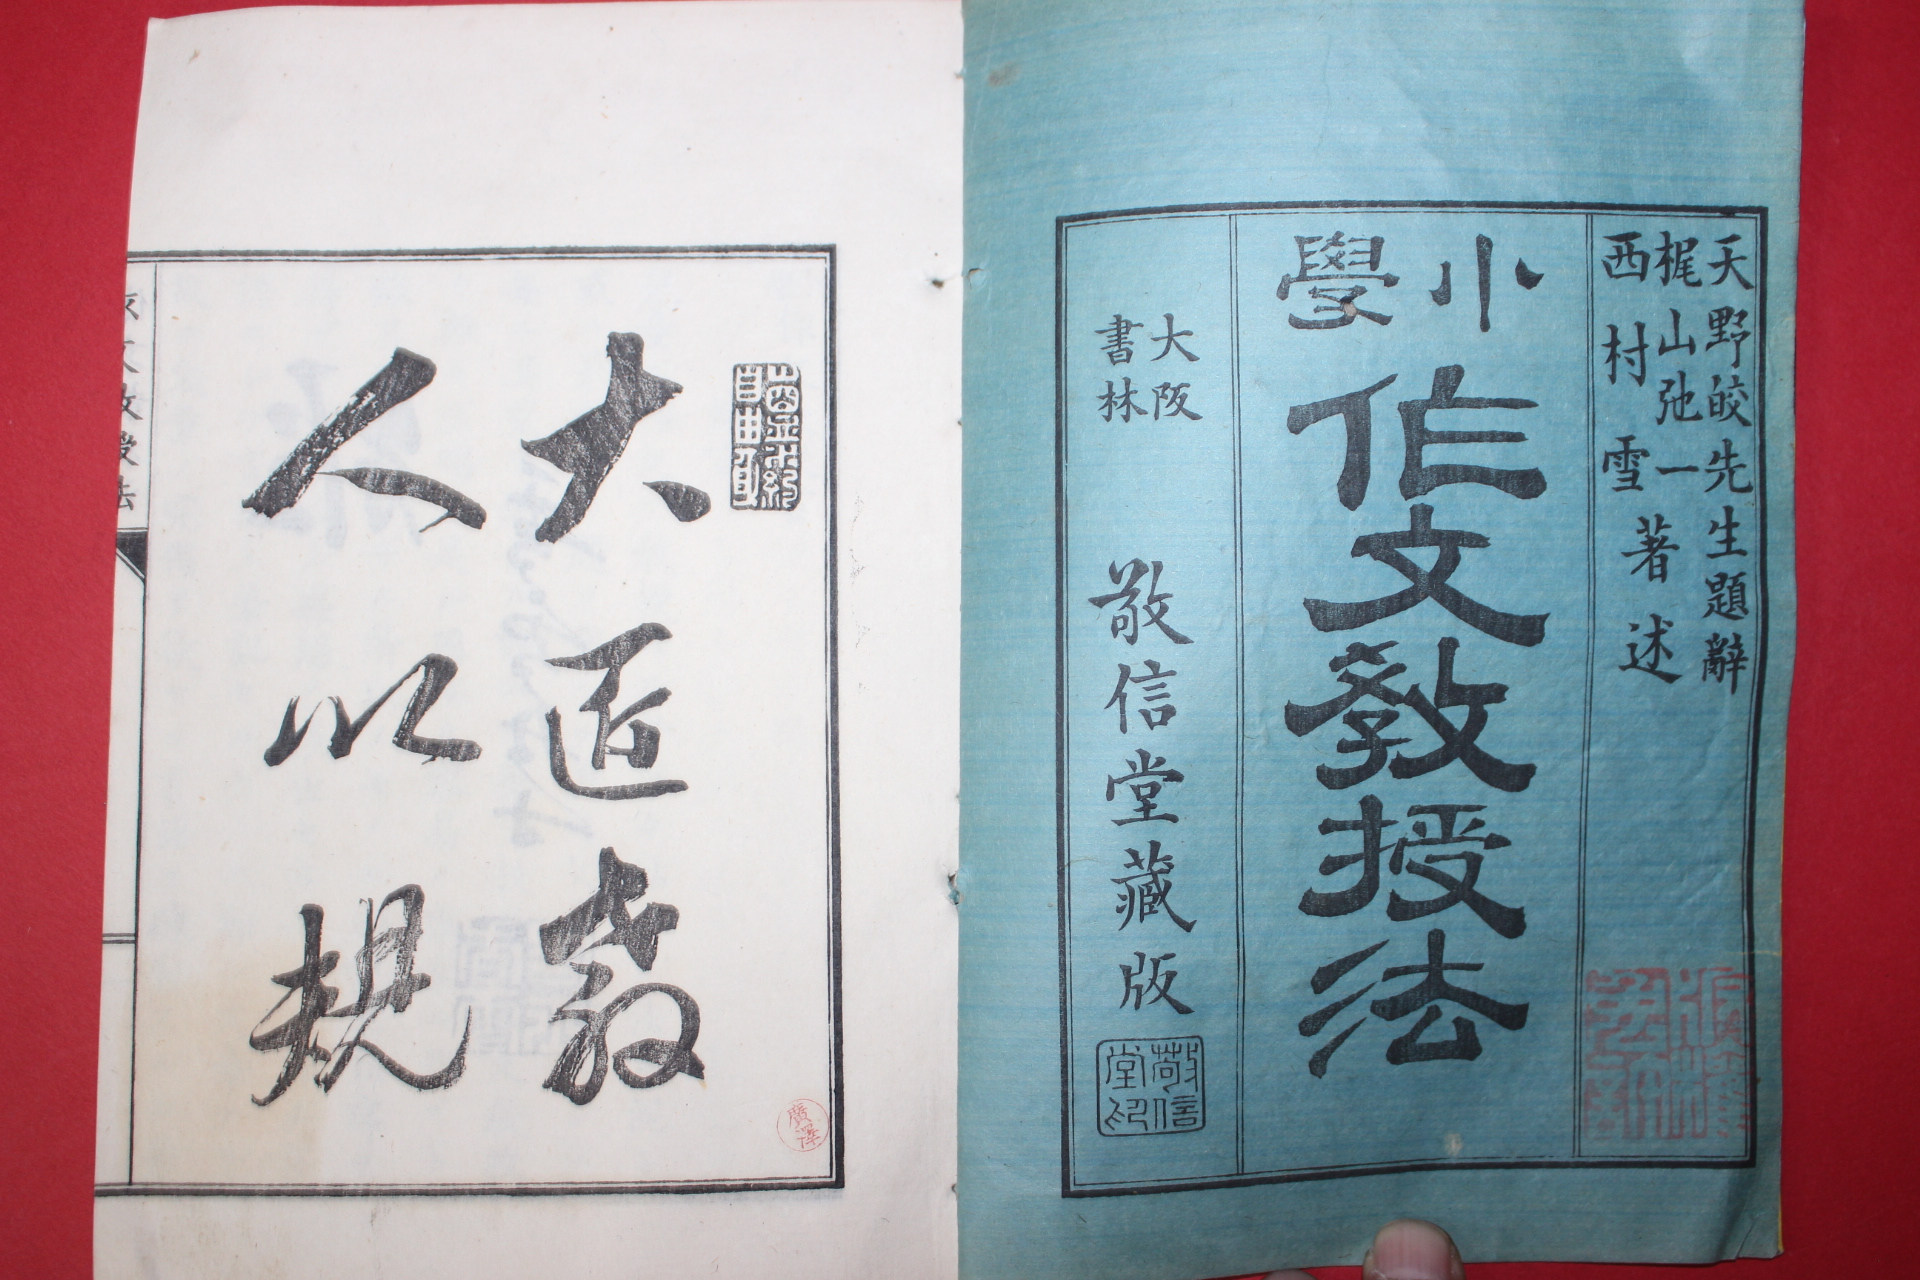 天野皎先生題辭
梶山弛一
西村雪
著述
小學
作文教授法
大阪
書林
敬信堂藏版
敬信堂印
大匠教
人以規
文教授法
廣澤